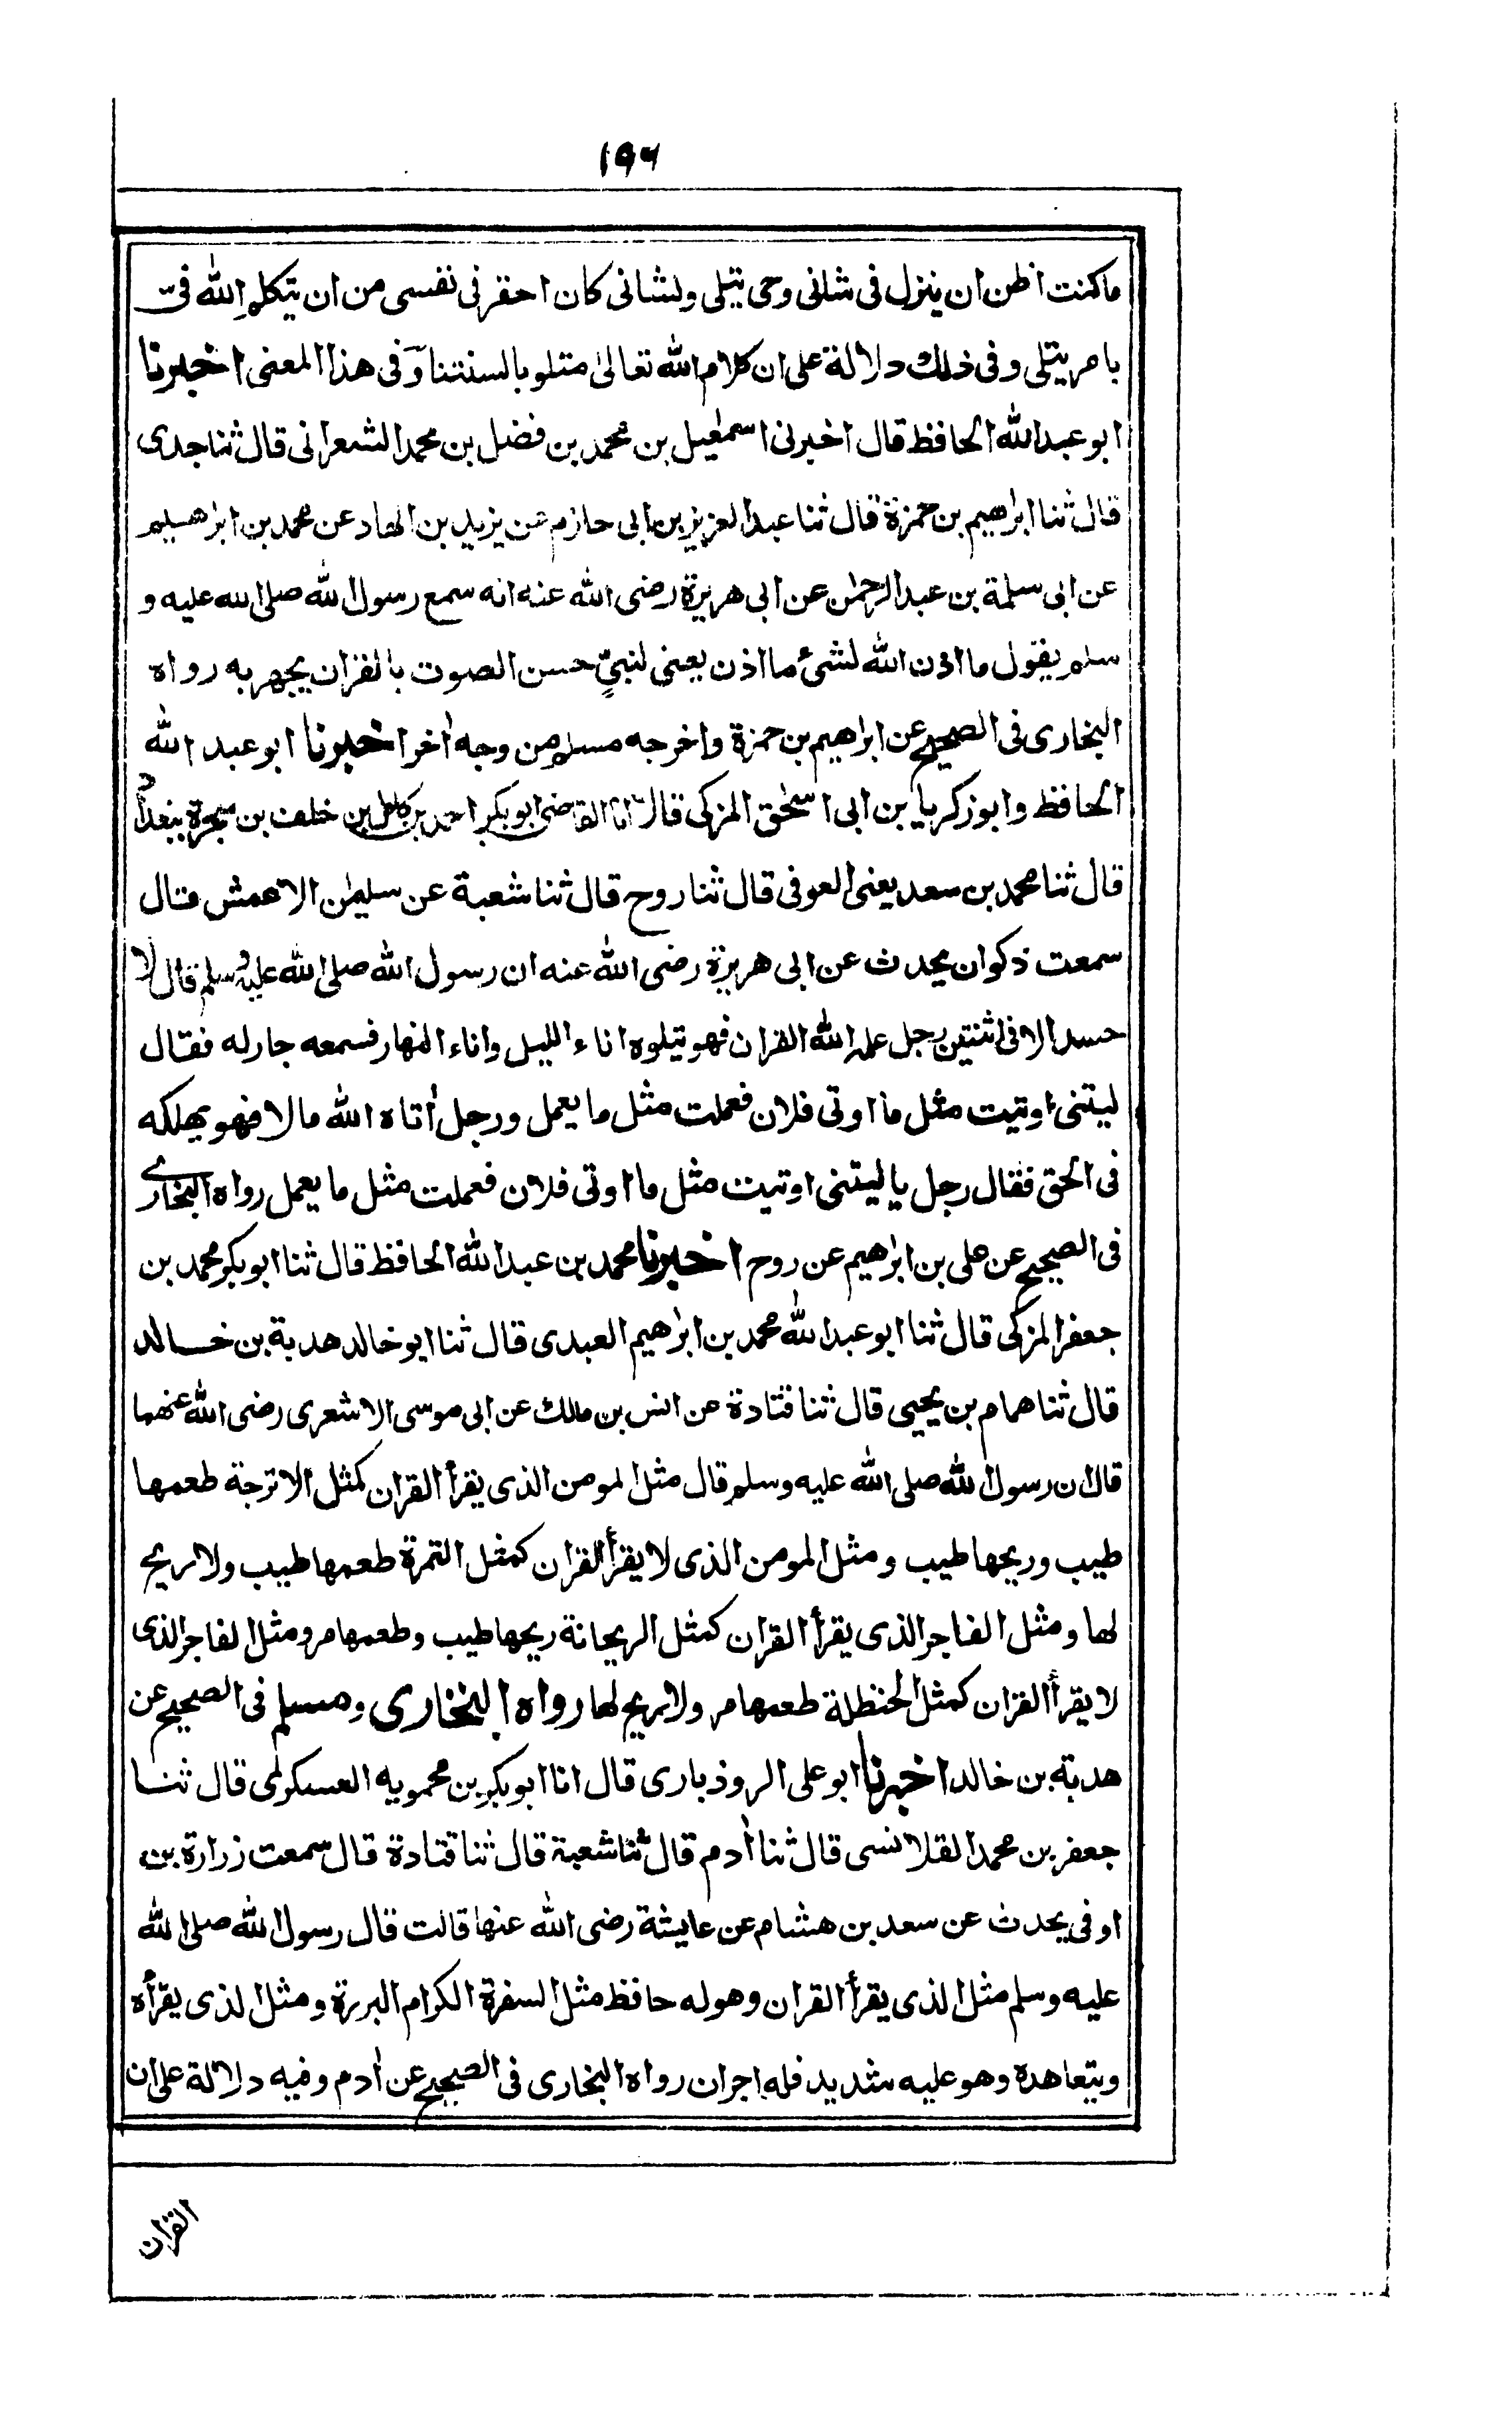 ١٩٦
ما كنت اظن ان ينزل فى شانى وحى يتلى ولشانى كان احقر فى نفسى من ان يتكلم الله فىّ
بامر يتلى وفى ذلك دلالة على ان كلام الله تعالىٰ متلو بالسنتنا وَفى هذا المعنى اخبرنا
ابو عبد الله الحافظ قال اخبرنى اسمٰعيل بن محمد بن فضل بن محمد الشعرانى قال ثنا جدى
قال ثنا ابرٰهيم بن حمزة قال ثنا عبد العزيز بن ابى حازم عن يزيد بن الهاد عن محمد بن ابرٰهيم
عن ابى سلمة بن عبد الرحمٰن عن ابى هريرة رضى الله عنه انه سمع رسول الله صلى الله عليه و
سلم يقول ما اذن الله لشىٔ ما اذن يعنى لنبيٍّ حسن الصوت بالقرٰان يجهر به رواه
البخارى فى الصحيح عن ابرٰهيم بن حمزة واخرجه مسلم من وجه اٰخر اخبرنا ابو عبد الله
الحافظ وابو زكريا بن ابى اسحٰق المزكى قالا انا القاضى ابو بكر احمد بن كامل بن خلف بن شجرة ببغداد
قال ثنا محمد بن سعد يعنى العوفى قال ثنا روح قال ثنا شعبة عن سليمٰن الاعمش قال
سمعت ذكوان يحدث عن ابى هريرة رضى الله عنه ان رسول الله صلى الله عليه وسلم قال لا
حسد الا فى اثنتين رجل علمه الله القرٰان فهو يتلوه اناء الليل واناء النهار فسمعه جار له فقال
ليتنى اوتيت مثل ما اوتى فلان فعملت مثل ما يعمل ورجل اٰتاه الله مالا فهو يهلكه
فى الحق فقال رجل يا ليتنى اوتيت مثل ما اوتى فلان فعملت مثل ما يعمل رواه البخارى
فى الصحيح عن على بن ابرٰهيم عن روح اخبرنا محمد بن عبد الله الحافظ قال ثنا ابو بكر محمد بن
جعفر المزكى قال ثنا ابو عبد الله محمد بن ابرٰهيم العبدى قال ثنا ابو خالد هدبة بن خالد
قال ثنا همام بن يحيى قال ثنا قتادة عن انس بن مالك عن ابى موسى الاشعرى رضى الله عنهما
قال ان رسول الله صلى الله عليه وسلم قال مثل المومن الذى يقرأ القرٰان كمثل الاترجة طعمها
طيب وريحها طيب ومثل المومن الذى لا يقرأ القرٰان كمثل التمرة طعمها طيب ولا ريح
لها ومثل الفاجر الذى يقرأ القرٰان كمثل الريحانة ريحها طيب وطعمها مر ومثل الفاجر الذى
لا يقرأ القرٰان كمثل الحنظلة طعمها مر ولا ريح لها رواه البخارى ومسلم فى الصحيح عن
هدبة بن خالد اخبرنا ابو على الروذبارى قال انا ابو بكر بن محمويه العسكرى قال ثنا
جعفر بن محمد القلانسى قال ثنا اٰدم قال ثنا شعبة قال ثنا قتادة قال سمعت زرارة بن
اوفى يحدث عن سعد بن هشام عن عايشة رضى الله عنها قالت قال رسول الله صلى الله
عليه وسلم مثل الذى يقرأ القرٰان وهو له حافظ مثل السفرة الكرام البررة ومثل الذى يقرأه
ويتعاهده وهو عليه شديد فله اجران رواه البخارى فى الصحيح عن اٰدم وفيه دلالة على ان
القرٰان